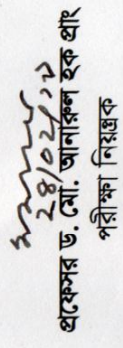 ২৪/০২/
প্রফেসর ড. মো. আনারুল হক প্রাং
পরীক্ষা নিয়ন্ত্রক